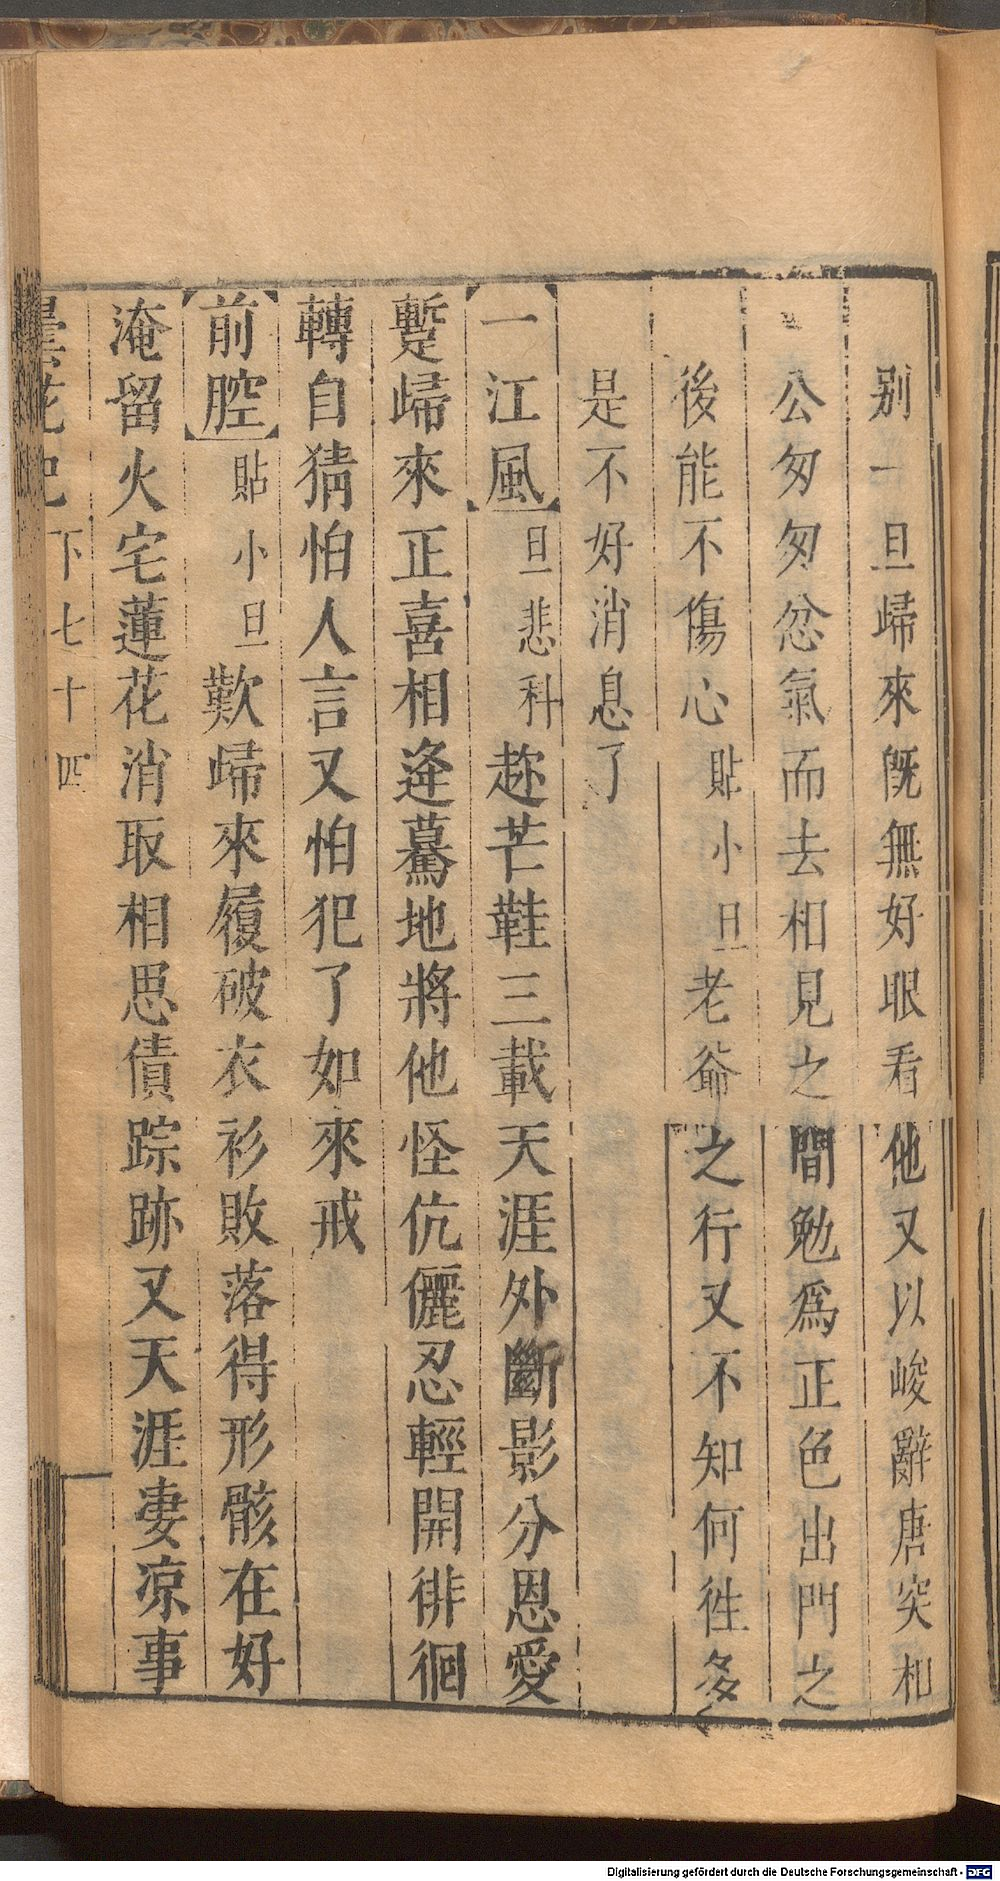 别一旦歸來旣無好眼看他又以峻辭唐突相
公匆匆忿氣而去相見之間勉爲正色出門之
後能不傷心貼小旦老爺之行又不知何徃多
是不好消息了
一江風旦悲科趂芒鞋三載天涯外斷影分恩愛
蹔歸來正喜相逢驀地將他怪伉儷忍輕開徘徊
轉自猜怕人言又怕犯了如來戒
前腔貼小旦歎歸來履破衣衫敗落得形骸在好
淹留火宅蓮花消取相思債踪跡又天涯妻凉事
曇花記 下七十四
Digitalisierung gefördert durch die Deutsche Forschungsgemeinschaft - DFG